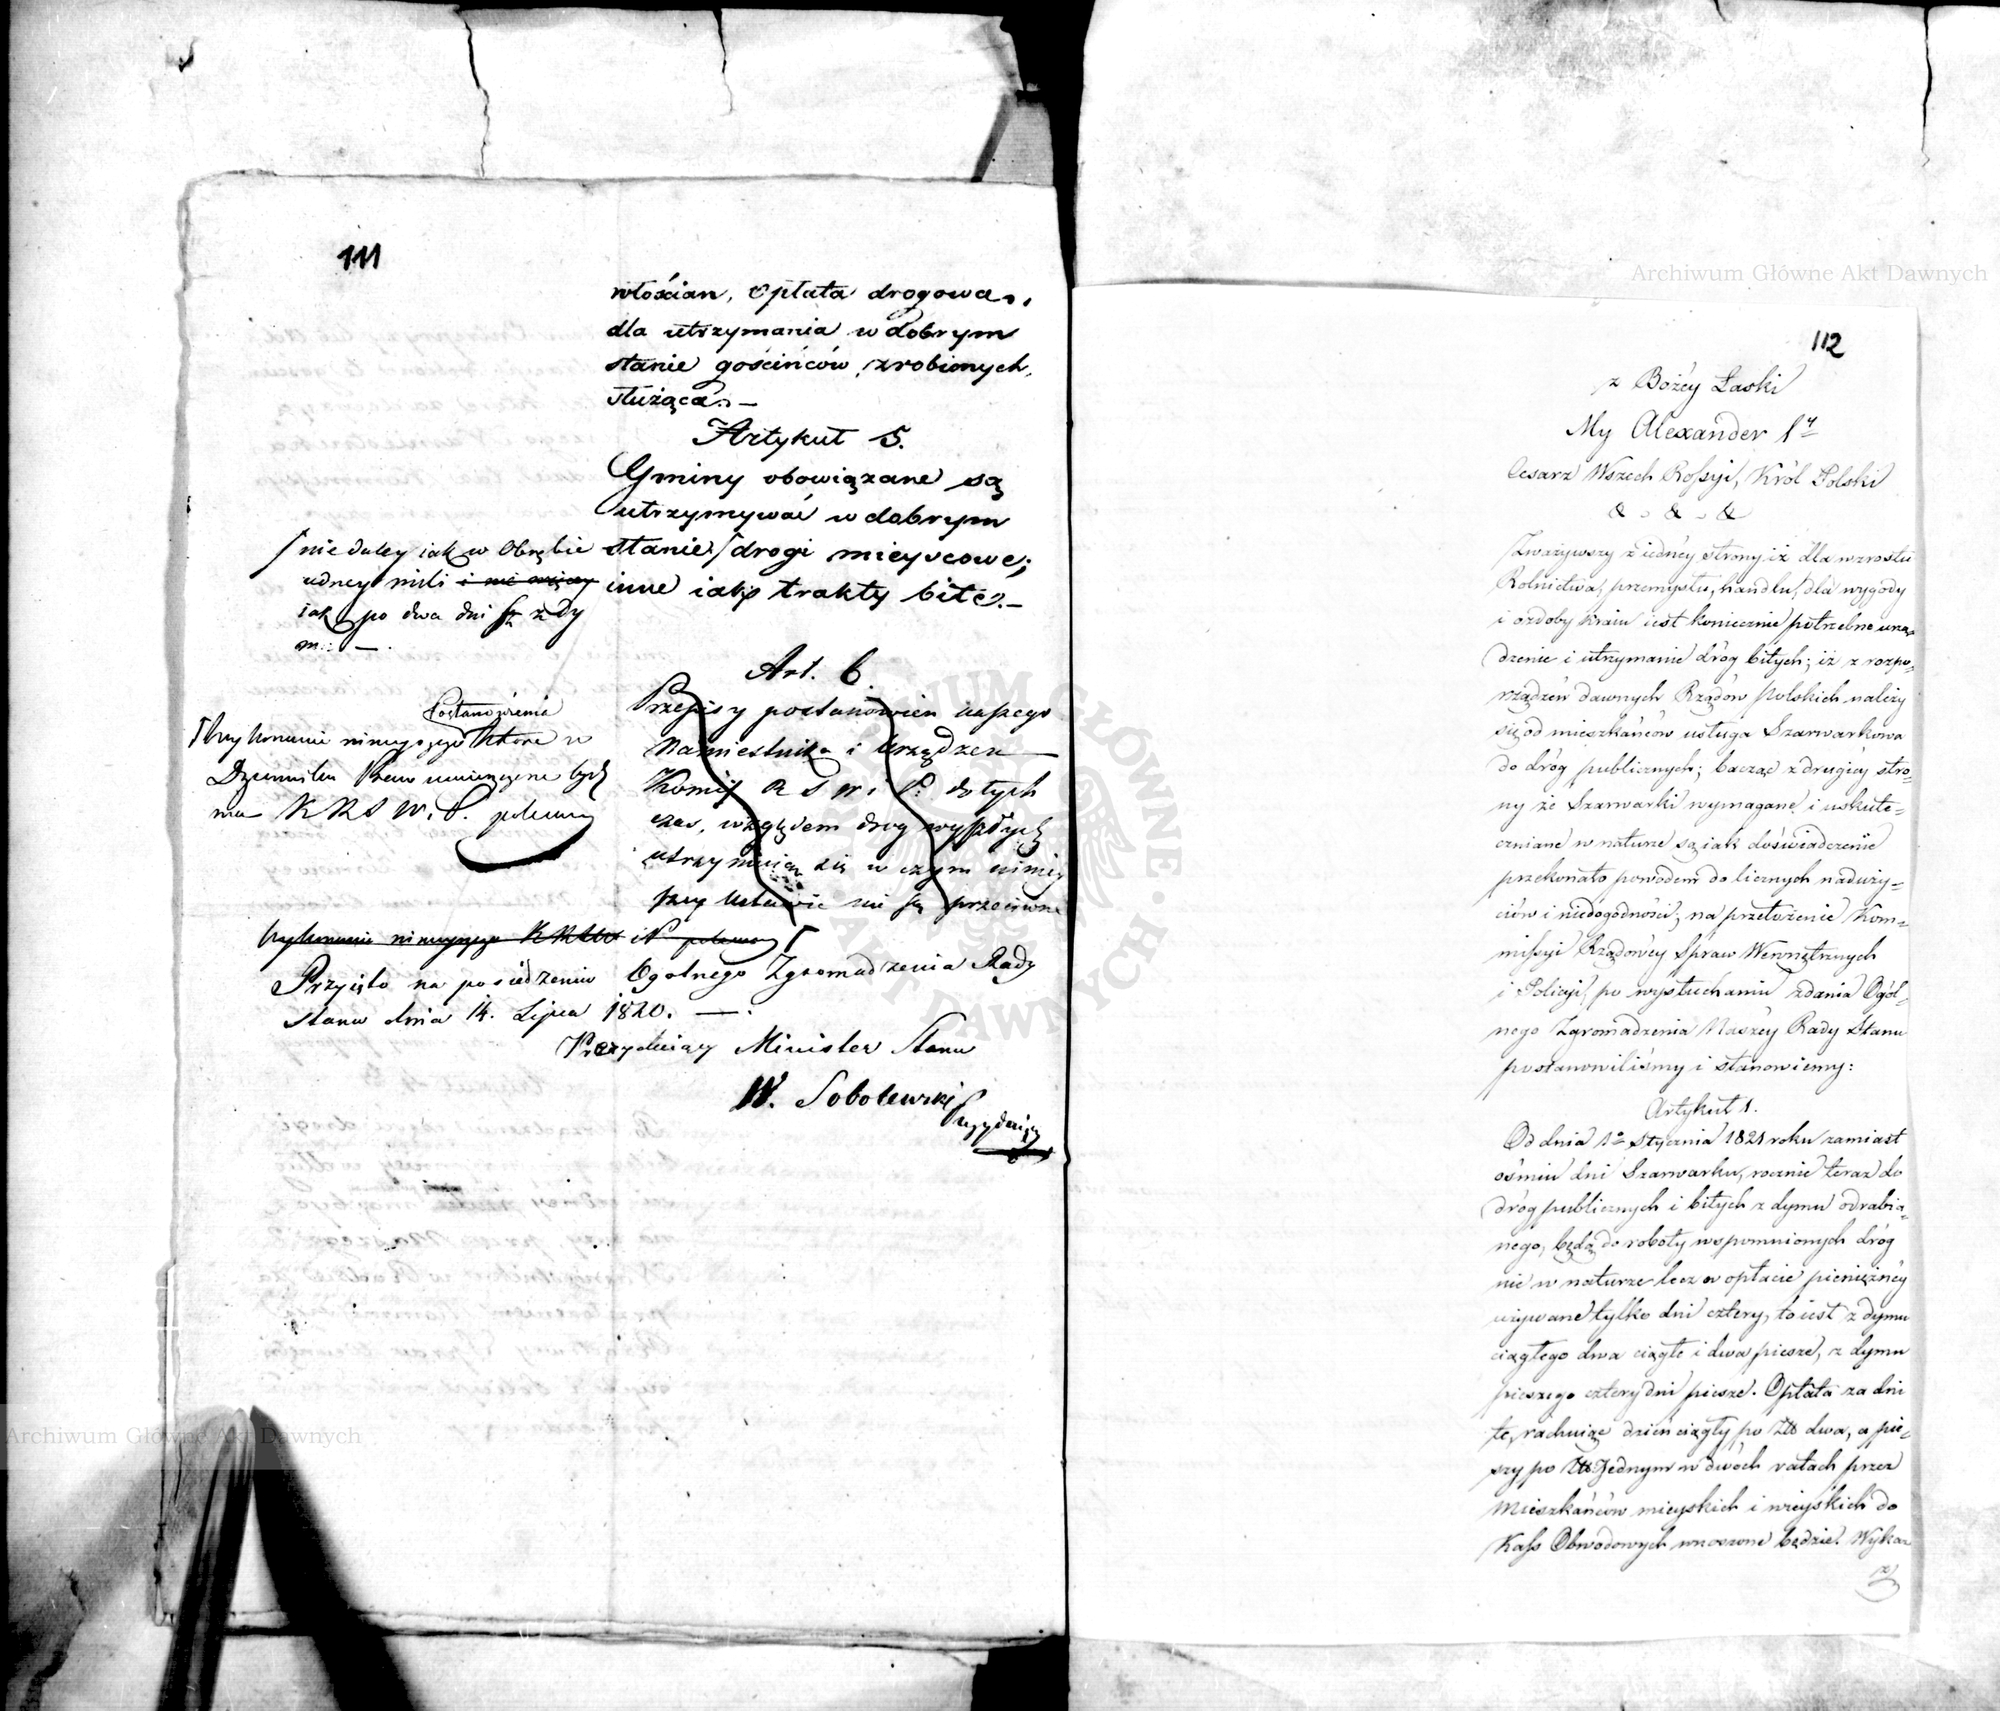 111
włościan, opłata drogowa,
dla utrzymania w dobrym
stanie gościńców zrobionych,
służąca. —
Artykuł 5.
Gminy obowiązane są
utrzymywać w dobrym
stanie / drogi mieyscowe;
inne iako trakty bite. —
/ nie daley iak w Obrębie
iedney mili i nie więcey
iak po dwa dni z dy
mu —.
Art. 6.
Przepisy postanowień naszego
Namiestnika i Urządzeń —
Komis R S W i P. dotych
czas, względem dróg wyszłych
utrzymuią się w czym ninie
szey Ustawie nie są przeciwne
Postanowienia
Wykonanie ninieyszego które w
Dzienniku Praw umieszczone być
ma KRSW. P. polecamy
Wykonanie ninieyszego KRSW i P polecamy
Przyięto na posiedzeniu Ogólnego Zgromadzenia Rady
Stanu dnia 14. Lipca 1820. —.
Prezyduiący Minister Stanu
W. Sobolewski
112
z Bożey Łaski
My Alexander 1y
Cesarz Wszech Rossyi, Król Polski
& . & . &
Zważywszy z iedney strony iż dla wzrostu
Rolnictwa, przemysłu, handlu, dla wygody
i ozdoby kraiu iest koniecznie potrzebne urzą-
dzenie i utrzymanie dróg bitych; iż z rozpo-
rządzeń dawnych Rządów Polskich należy
się od mieszkańców usługa Szarwarkowa
do dróg publicznych; bacząc z drugiey stro-
ny że Szarwarki wymagane i uskute-
czniane w naturze są iak doświadczenie
przekonało powodem do licznych naduży-
ciów i niedogodności, na przełożenie Kom-
missyi Rządowey Spraw Wewnętrznych
i Policyi, po wysłuchaniu zdania Ogól-
nego Zgromadzenia Naszey Rady Stanu
postanowiliśmy i stanowiemy:
Artykuł 1.
Od dnia 1o Stycznia 1821 roku zamiast
ośmiu dni Szarwarku, rocznie teraz do
dróg publicznych i bitych z dymu odrabia-
nego, będą do roboty wspomnionych dróg
nie w naturze lecz w opłacie pieniężney
używane tylko dni cztery, to iest z dymu
ciągłego dwa ciągłe i dwa piesze, z dymu
pieszego cztery dni piesze. Opłata za dni
te, rachuiąc dzień ciągły po Złł dwa, a pie-
szy po Złł jednym w dwóch ratach przez
Mieszkańców mieyskich i wieyskich do
Kass Obwodowych wnoszone będzie. Wykaz
Archiwum Główne Akt Dawnych
Archiwum Główne Akt Dawnych
ARCHIWUM GŁÓWNE · AKT DAWNYCH ·